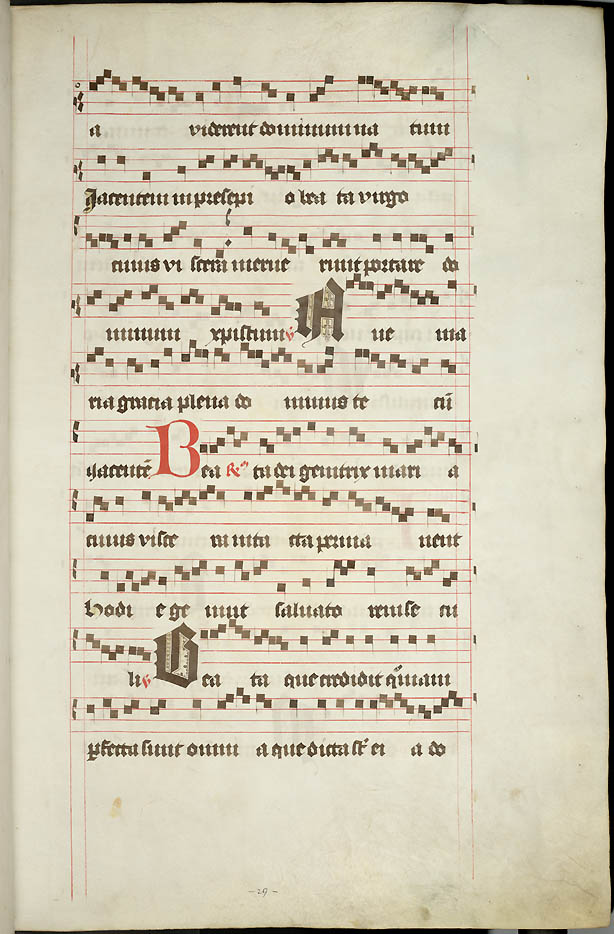 a viderent dominum na tum
Jacentem in presepi o bea ta virgo
cuius vi scera merue runt portare do
minum xpistum ℣ A ue ma
ria gracia plena do minus te cū
iacentē B ea ℟ ta dei genitrix mari a
cuius visce ra inta cta perma nent
hodi e ge nuit saluato rem se cu
li ℣ B ea ta que credidit qm̄ am
perfecta sunt omni a que dicta st̄ ei a do
-29-